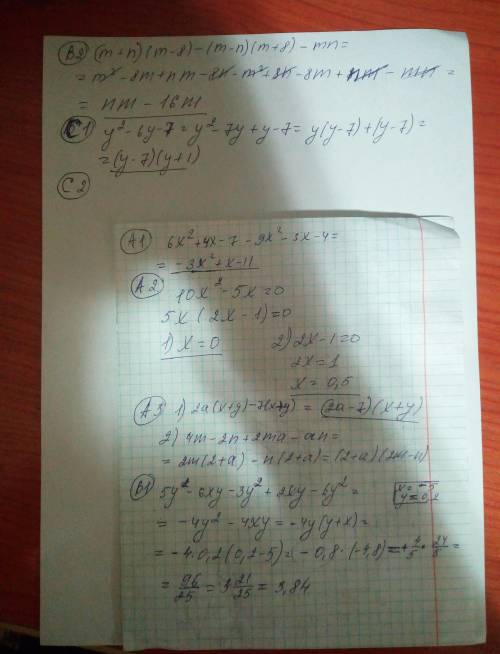 B2) (m+n)(m-8)-(m-n)(m+8)-mn=
= m²-8m+nm-8n-m²+8n-8m+nm-mn=
= nm-16m
C1) y²-6y-7=y²-7y+y-7=y(y-7)+(y-7)=
=(y-7)(y+1)
C2
A1) 6x²+4x-7-9x²-3x-4=
= -3x²+x-11
A2) 10x²-5x=0
5x(2x-1)=0
1) x=0 2) 2x-1=0
2x=1
x=0,5
A3 1) 2a(x+y)-7(x+y) = (2a-7)(x+y)
2) 4m-2n+2ma-an=
= 2m(2+a)-n(2+a)=(2+a)(2m-n)
B1) 5y²-6xy-3y²+2xy-6y²=
= -4y²-4xy=-4y(y+x)=
= -4·0,2(0,2-5)=-0,8·(-4,8)=+4/5·24/5=
= 96/25 = 3 21/25 = 3,84